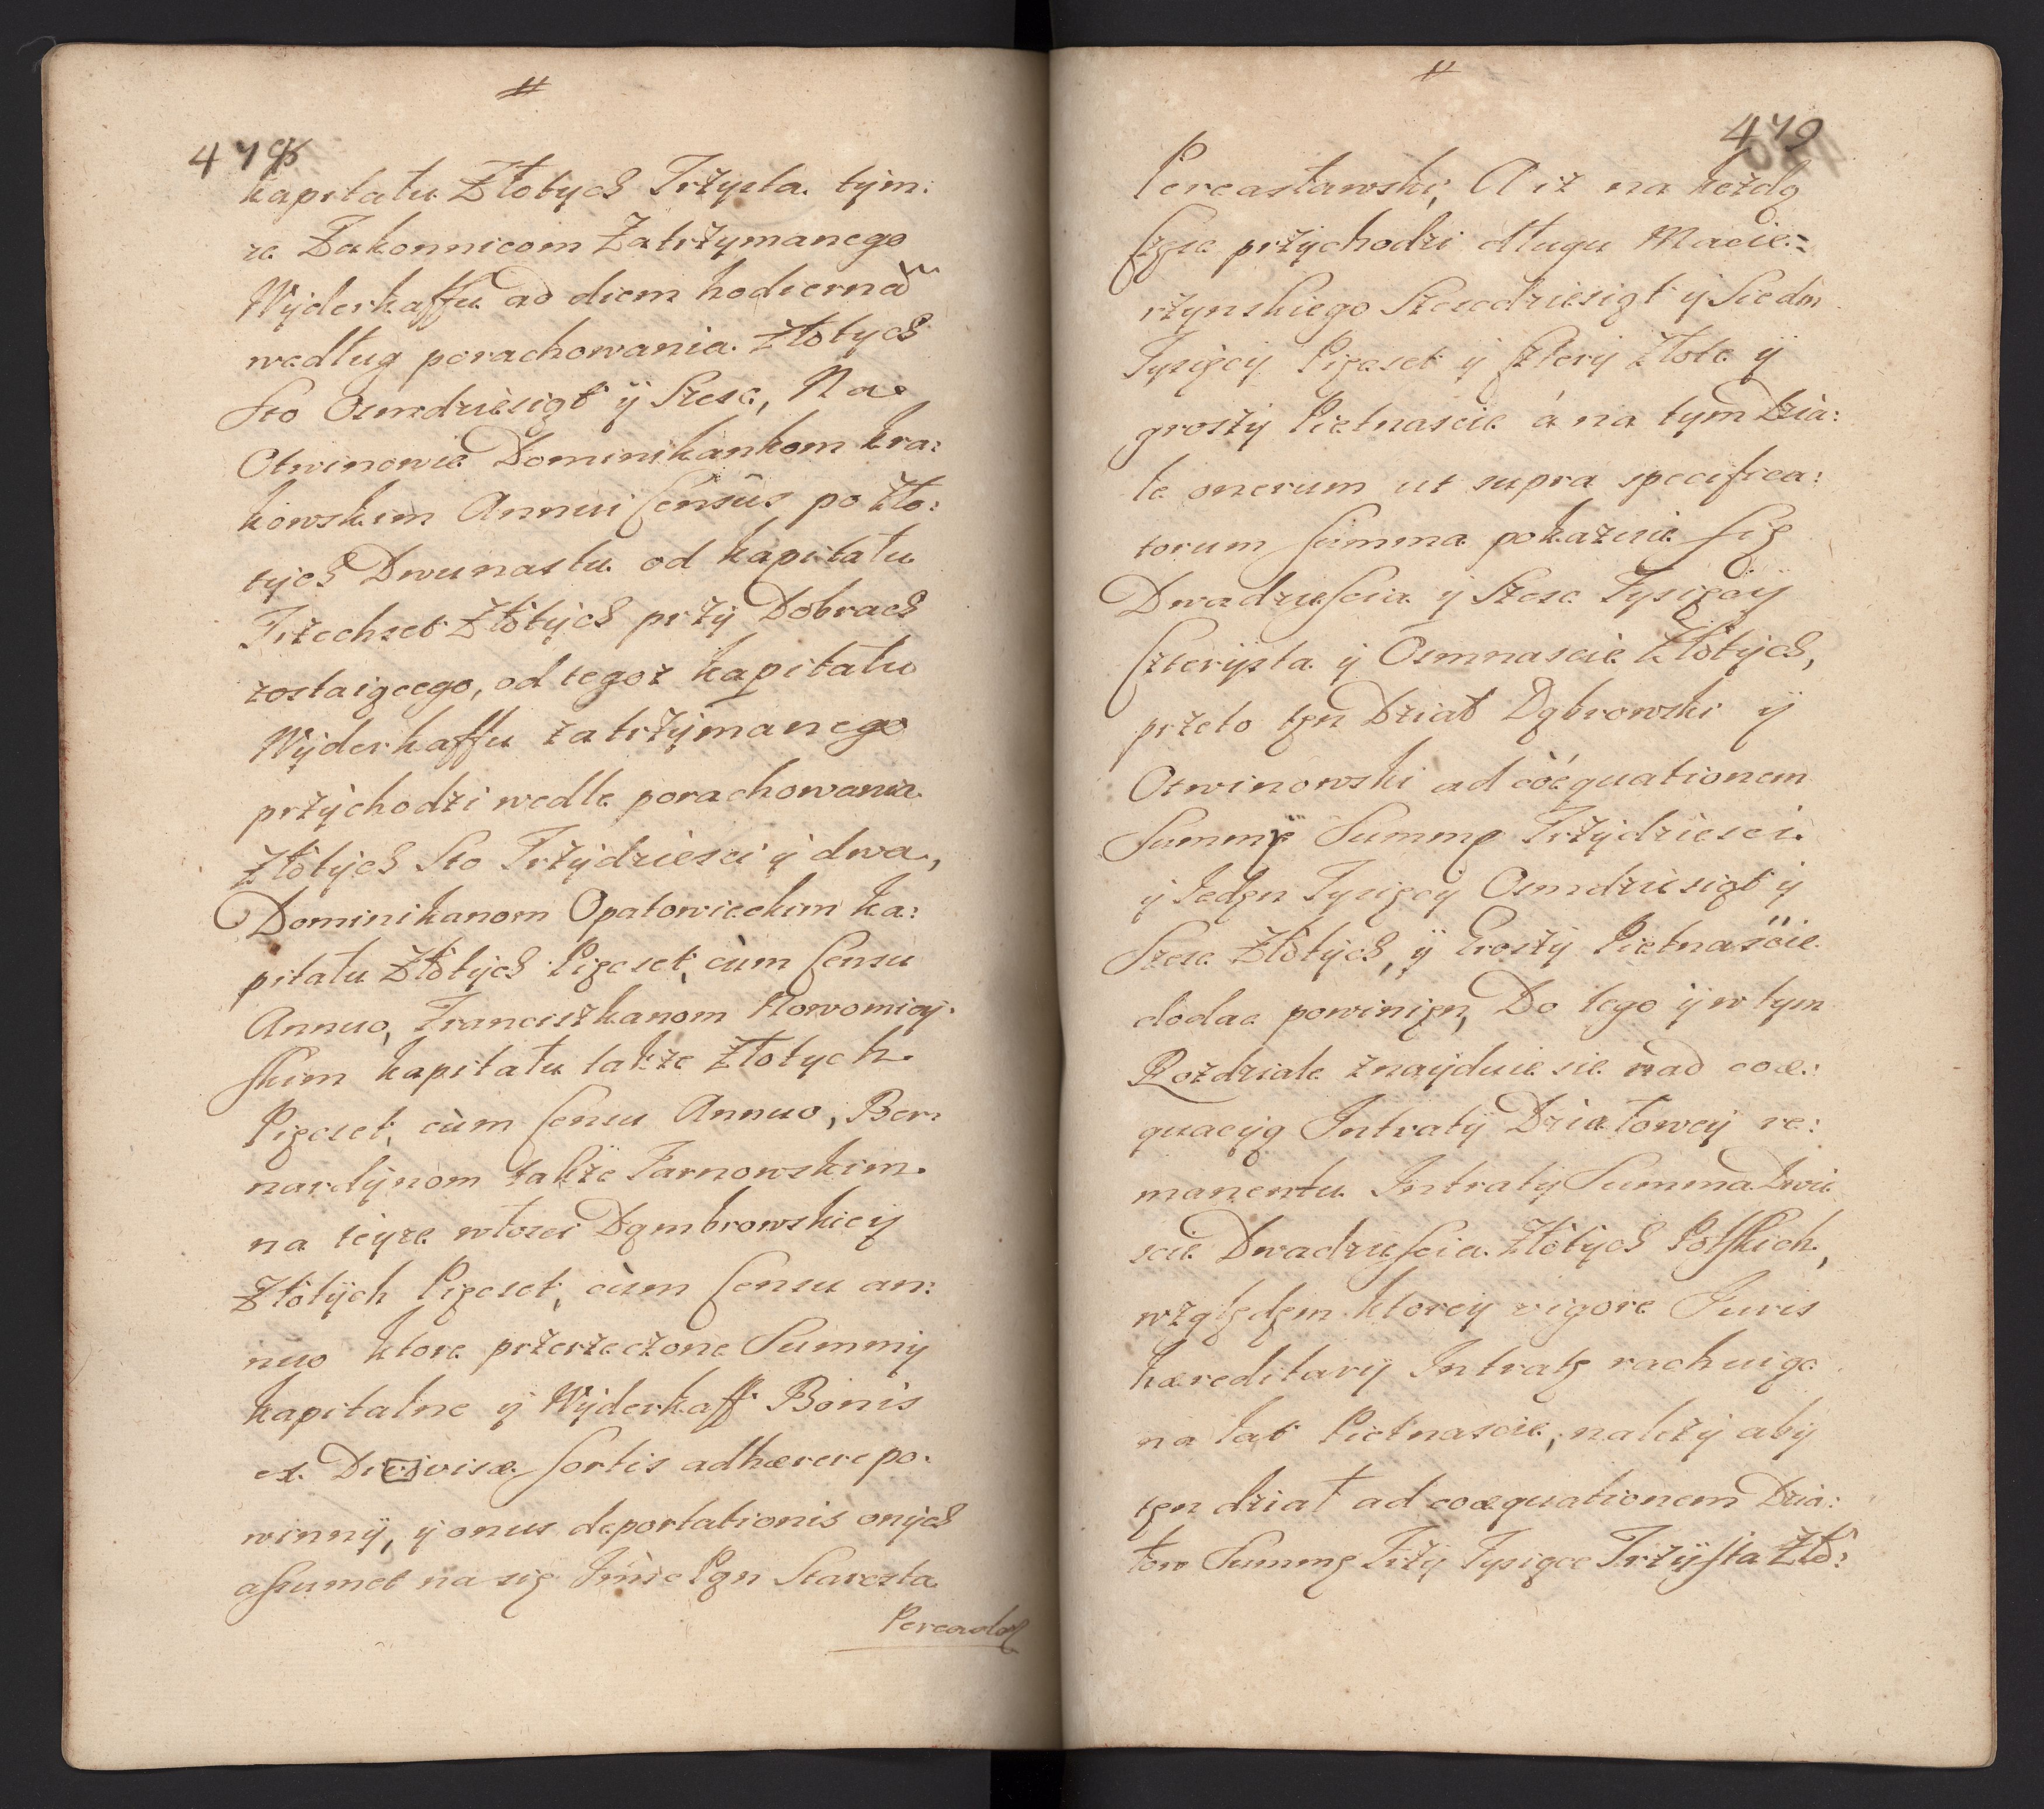 #
478
kapitału Złotych Trzysta tym:
ze Zakonnicom Zatrzymanego
Wyderkaffu ad diem hodiernã
według porachowania Złotych
Sto Osmdziesiąt ÿ Szesc, Na
Otwinowie Dominikankom kra:
kowskim Annui Censûs po Zło:
tych Dwunastu od kapitału
Trzechset Złotych przy Dobrach
zostaiącego, od tegoz kapitału
Wyderkaffu zatrzymanego
przychodzi wedle porachowania
Złotych Sto Trzydziesci ÿ dwa,
Dominikanom Opatowieckim ka:
pitału Złotych Pięcset, cùm Censu
Annuo, Franciszkanom Nowomiey:
skim kapitału także Złotych
Pięcset, cùm Censu Annuo, Ber:
nardynom także Tarnowskim
na teyze włosci Dąmbrowskieÿ
Złotych Pięcset, cùm Censu an:
nuo ktore przerzeczone Summy
kapitalne ÿ Wyderkaff Bonis
ex Divisæ Sortis adhærere po:
winnÿ, ÿ onus deportationis onych
assumet na się Jmc Pąn Starosta
Pereasła
#
479
Pereasławski, A iz na kozdą
Częsc przychodzi długu Macie=
rzynskiego Szescdziesiąt ÿ Siedm
Tysięcÿ Pięcset ÿ Czterÿ Złote ÿ
groszÿ Pietnascie á na tym Dzia:
le onerum ut supra specifica:
torum Summa pokazuie się
Dwadziescia ÿ Szesc Tysięcÿ
Czterysta ÿ Osmnascie Złotych,
przeto tęn Dział Dąbrowski ÿ
Otwinowski ad coéquationem
Summÿ Summę Trzydziesci
ÿ Jedęn Tysięcÿ Osmdziesiąt ÿ
Szesc Złotych, ÿ Groszÿ Pietnascie
dodac powinięn, Do tego ÿ w tym
Rozdziale znayduie sie nad coæ:
quacyą Intratÿ Działoweÿ re:
manentu Intratÿ Summa Dwie
scie Dwadziescia Złotych Polskich,
względęm ktoreÿ vigore Juris
hæreditarÿ Intratę rachuiąc
na Lat Pietnascie, należy abÿ
tęn dział ad coæquationem Dzia:
łow Summę Trzÿ Tysiące Trzysta Zło: